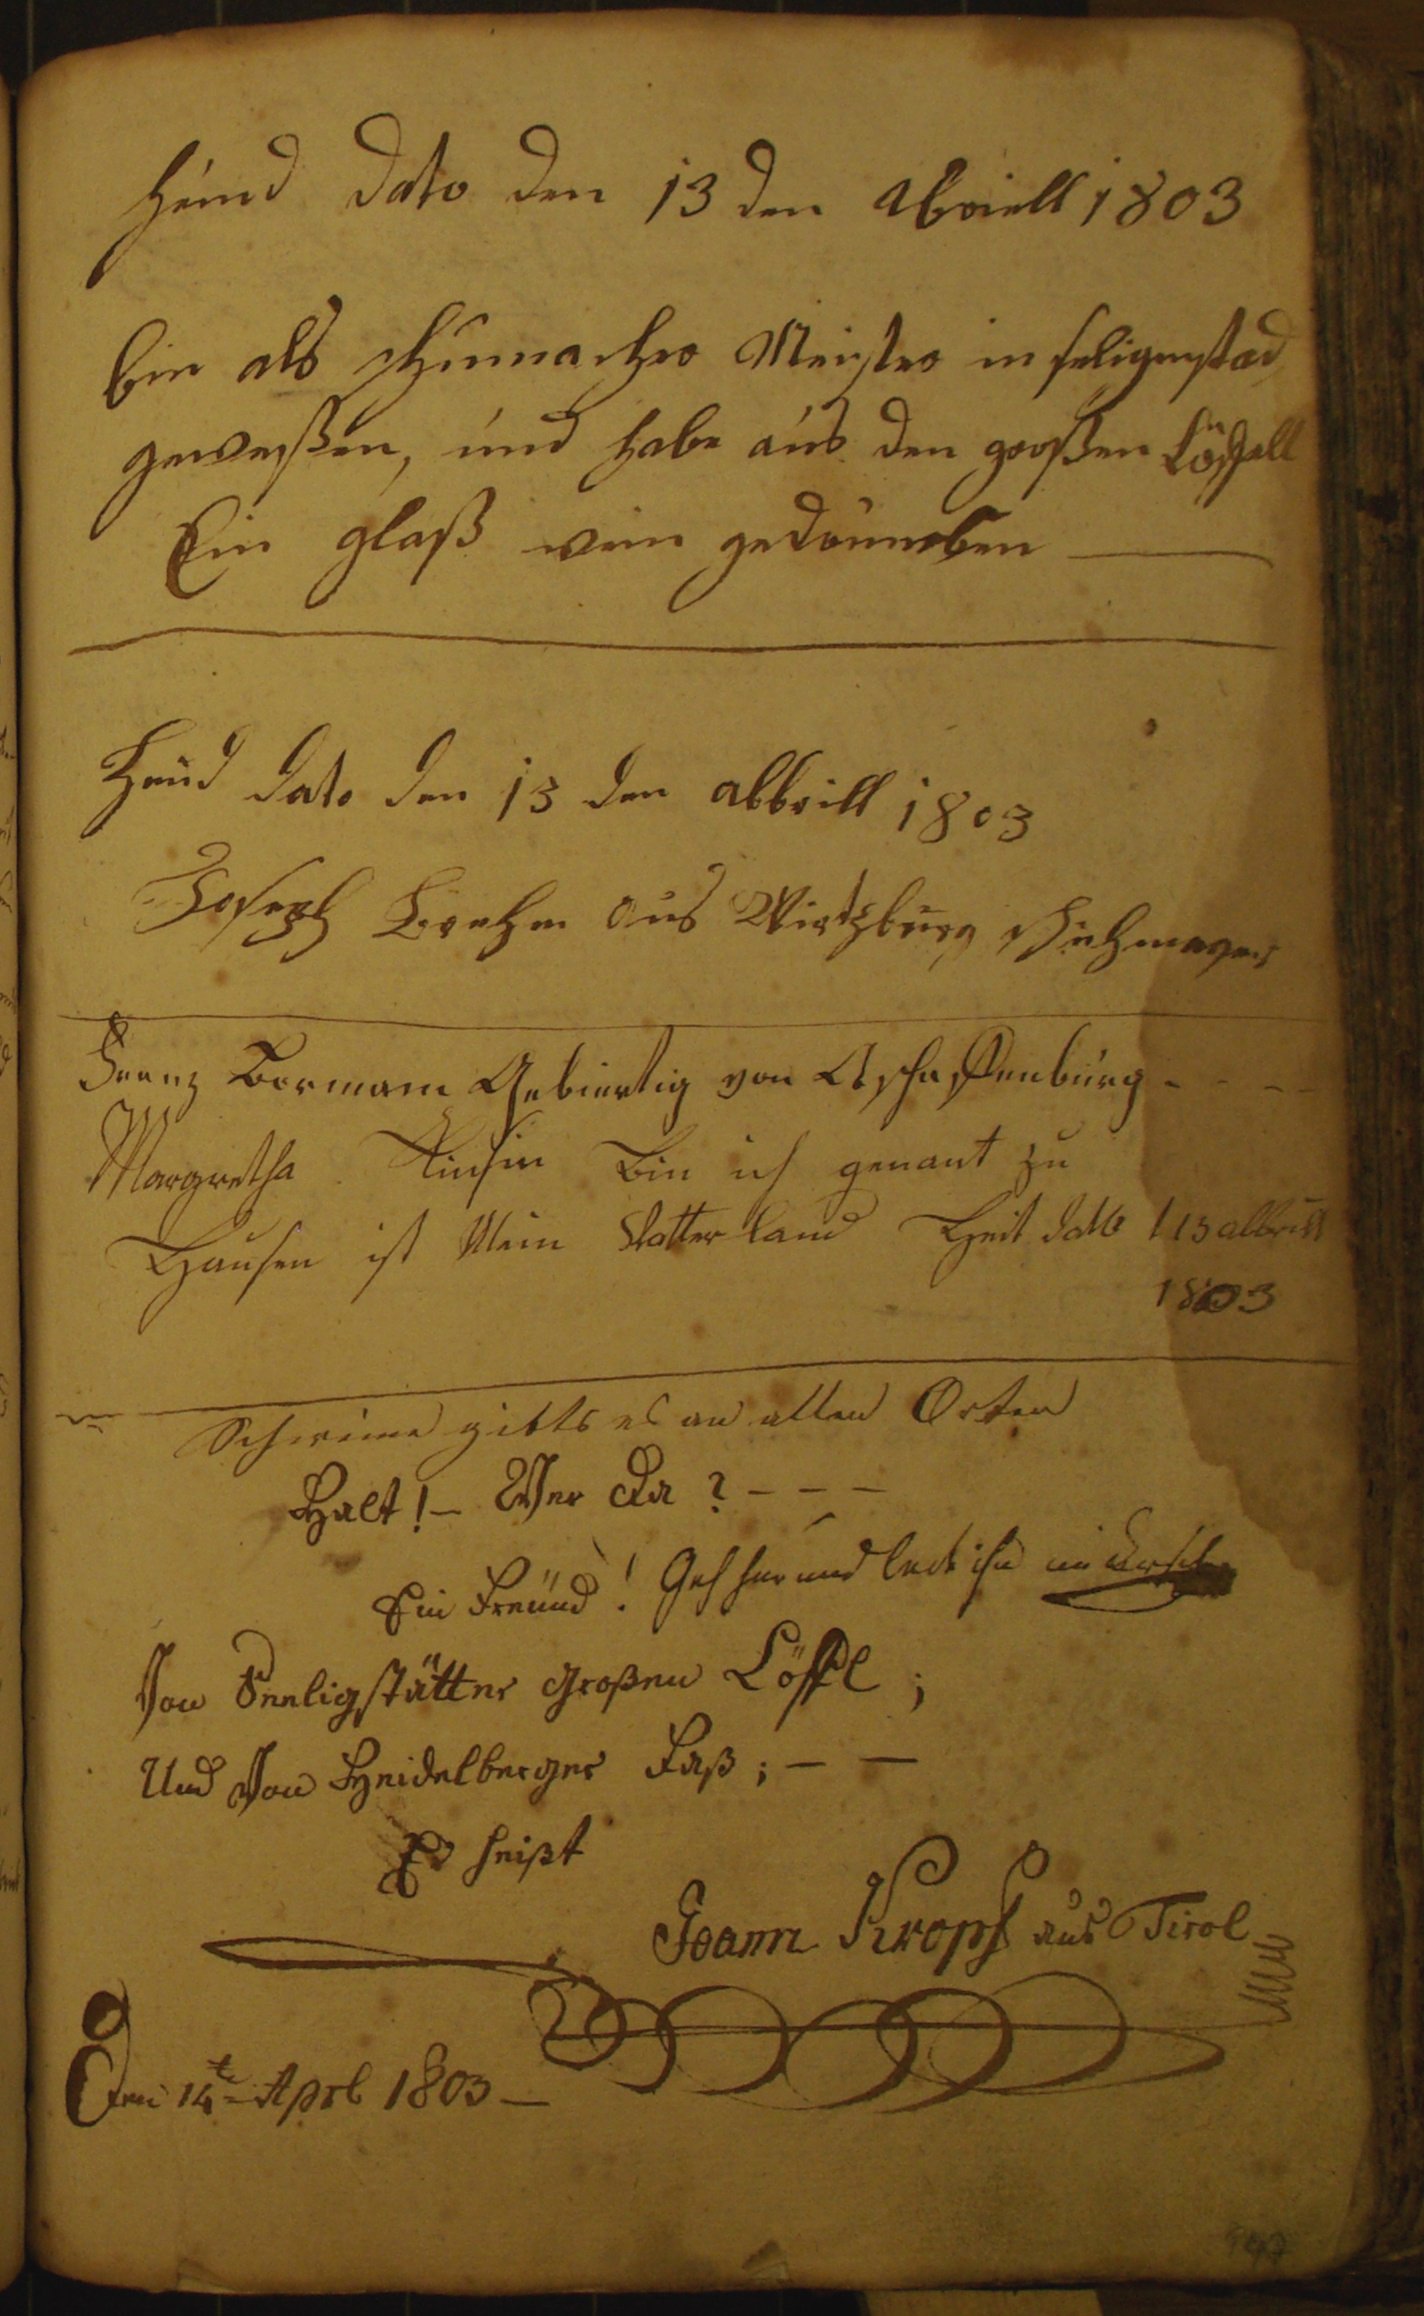 heind dato den 13 den abriell 1803
bin als schumacher Meister in seligenstad
gewessen, und habe aus den grossen Löffell
Ein glaß wein gedruncken
Heud dato den 13 den abbrill 1803
Joseph Brehm aus Wirtzburg
Franz Bormann Gebiertig von Aschaffenburg
Margretha bin ich genant zu
Hausen ist Mein Vatter land Heit dato 13 abbrill
1803
Schweine gibts es an allen Orten
Halt! – Wer da? – – –
Ein Freünd! Geh her und leck ihn im Arsch
Von Seeligstätter Großen Löffl;
Und Von Heidelberger Faß; – –
Es heißt
Joann Kropf aus Tirol
Den 14te Aprl 1803 –